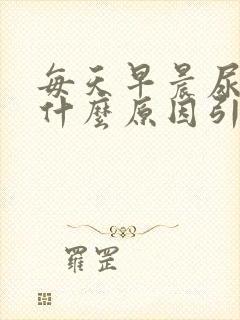 每天早晨尿
什麼原因引
羅罡